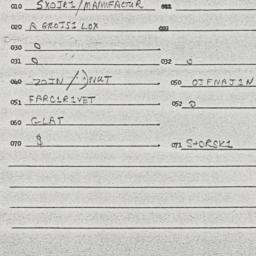 010 SXOJRI/MANUFACTUR
020 A GROTSI LOX
030 O
031 O 032 O
040 ZOIN / JNUT 050 OIFNAJIN
051 FARCIRIVET 052 O
060 GLAT
070 $ 071 STORSKI